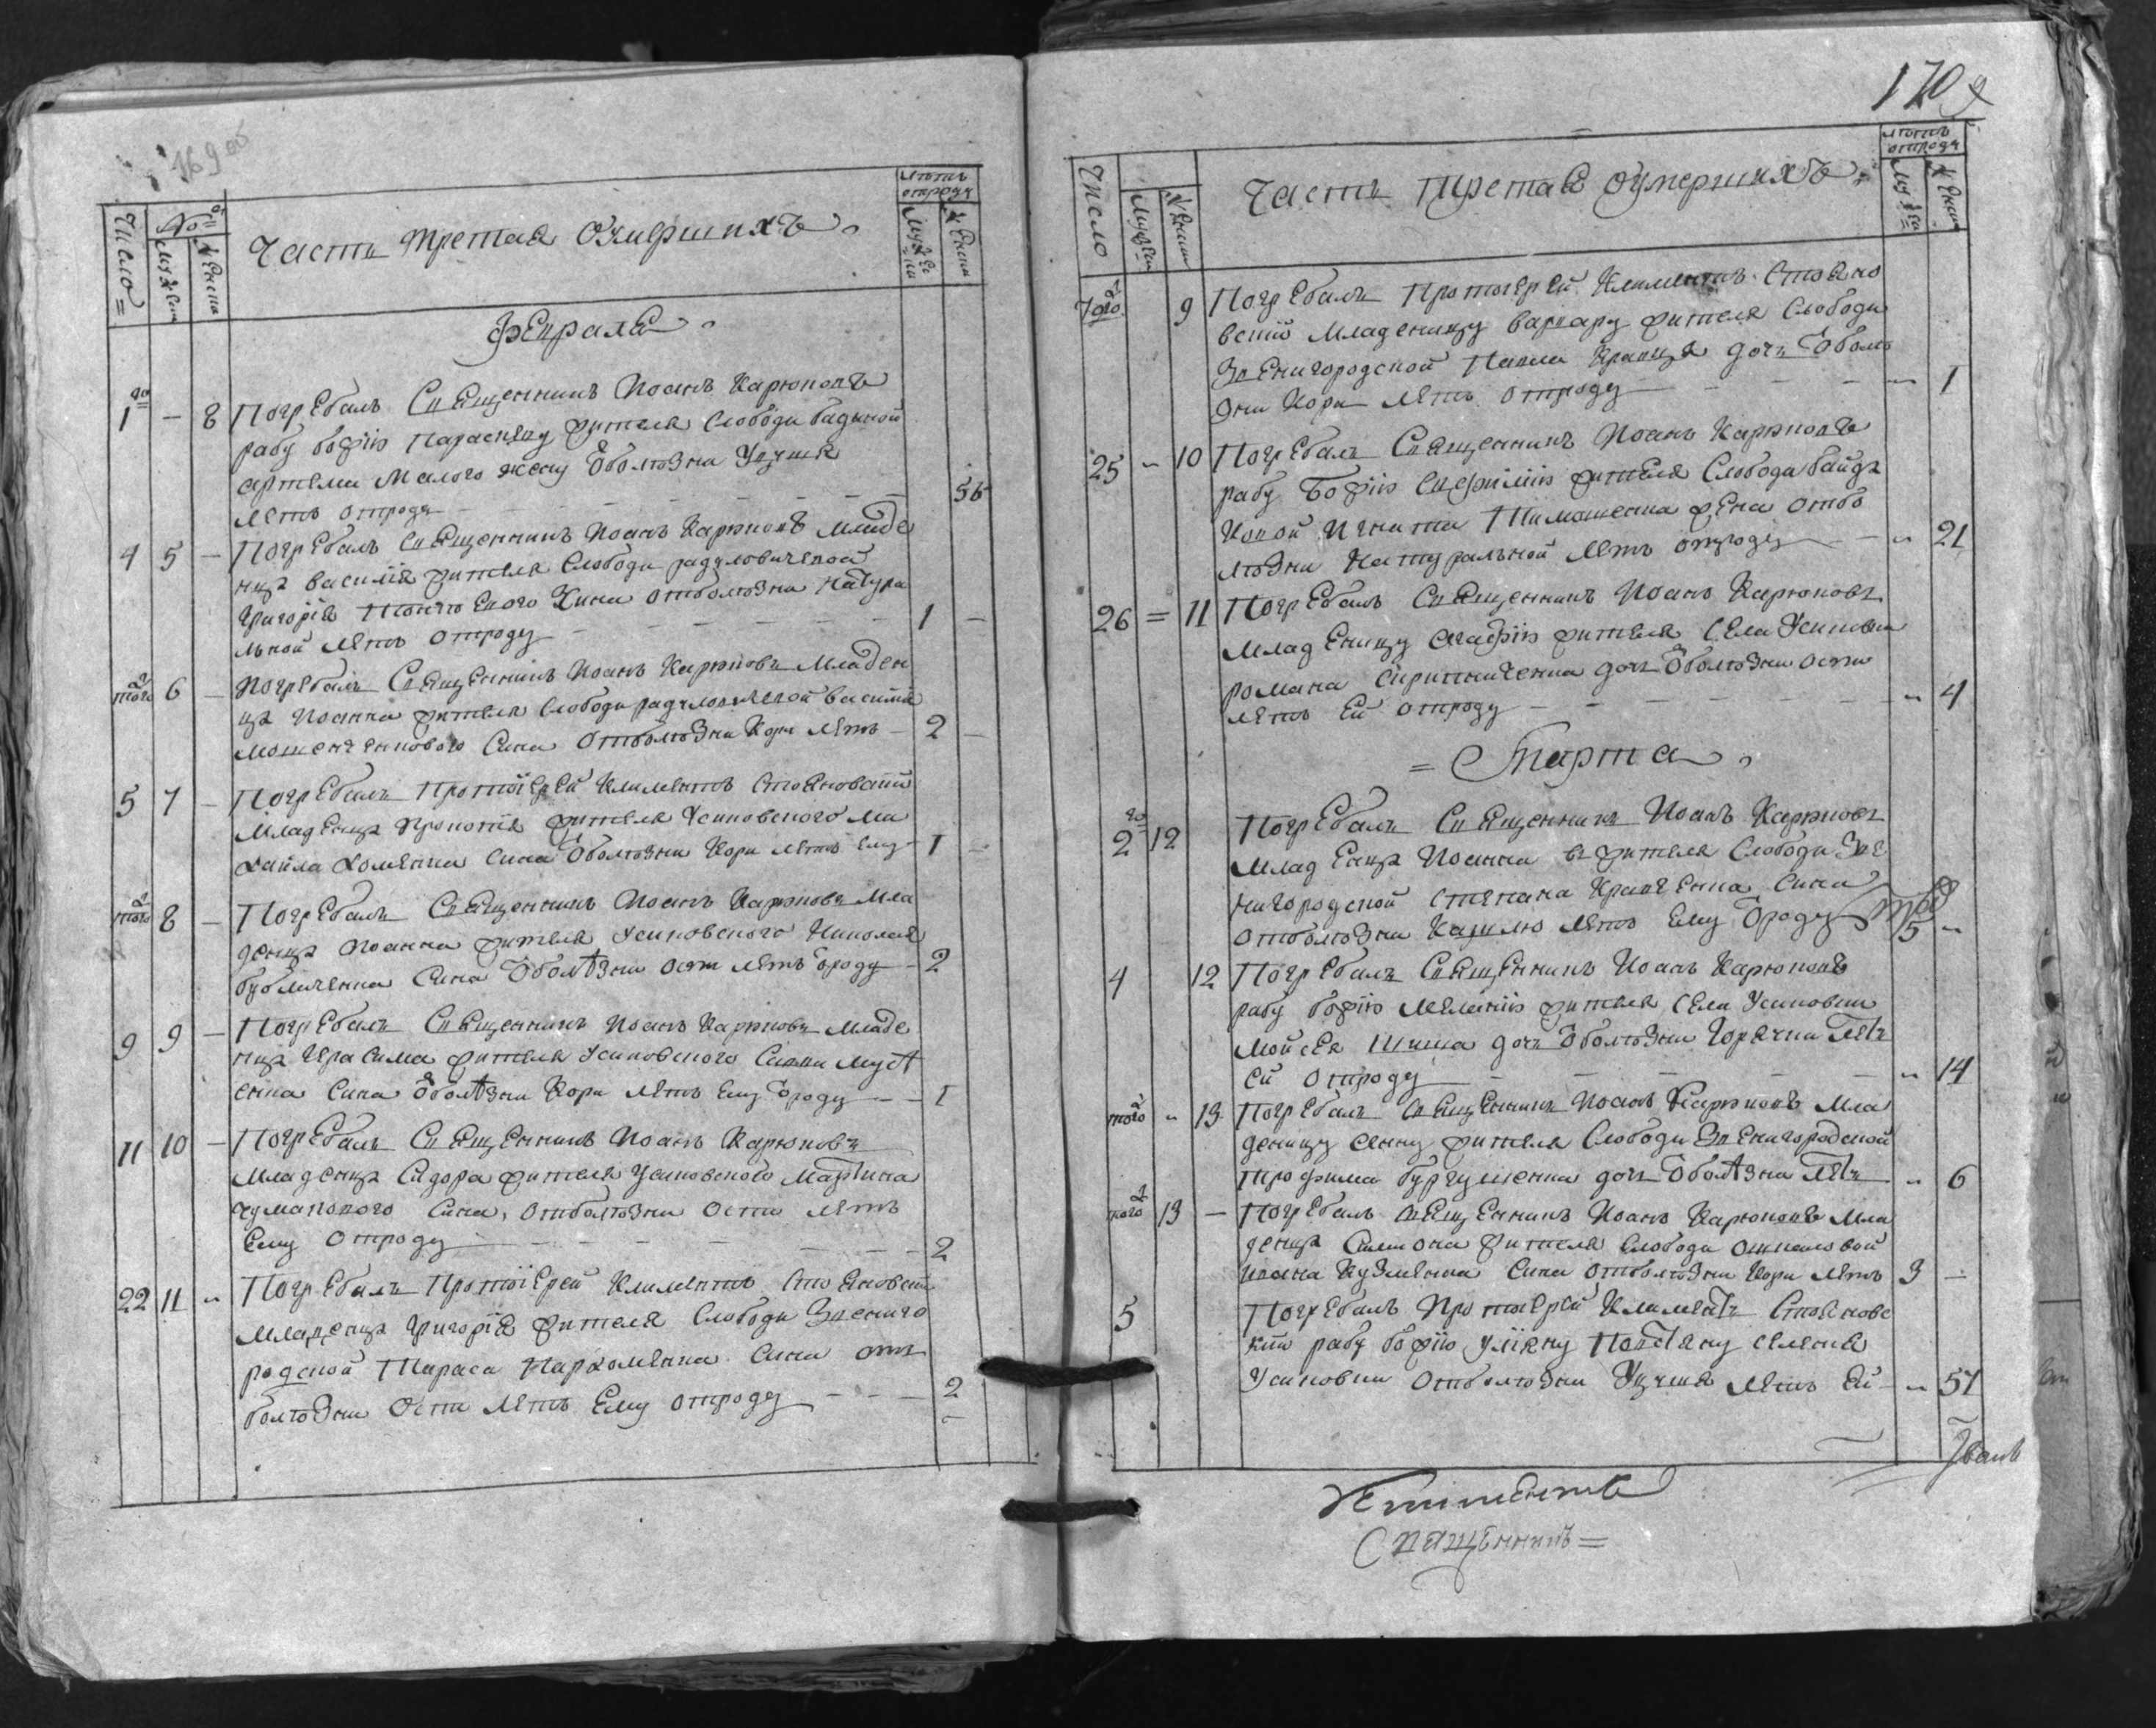 169 об
Число
№
Мужеск
Женска
Часть третая оумершихъ
лѣтъ
отроду
Мужес
ка
Женска
Февраля
1го – 8 Погребалъ Священникъ Иоанъ Карюковъ
рабу божію Параскеву жителя Слободи
артема Малого жену ѿболѣзни Удушя
лѣтъ отроду 56
4 5 – Погребалъ Священникъ Иоанъ Карюковъ Младе
нца василія жителя Слободи радуловичевой
Григорія сина отболѣзни натура
льной лѣтъ отроду 1 –
того 6 – Погребалъ Священникъ Иоанъ Карюковъ Младен
ца Иоанна жителя Слободи василія
сина отболѣзни Кори лѣтъ – 2 –
5 7 – Погребалъ Протоіерей Климентъ Стояновскій
Младенца Прокопія жителя Усиковского Ми
хайла Хоменка сина ѿболѣзни Кори лѣтъ Ему – 1 –
того 8 – Погребалъ Священникъ Иоанъ Карюковъ Мла
денца Иоанна жителя Усиковского Николая
бубличенка Сина ѿболѣзни оспи лѣтъ ѿроду – 2
9 9 – Погребалъ Священникъ Иоанъ Карюковъ Младе
нца Герасима жителя Усиковского
енка Сина ѿболѣзни Кори лѣтъ Ему ѿроду – – 1
11 10 – Погребалъ Священникъ Иоанъ Карюковъ
Младенца Сидора жителя Усиковского Мартина
Чумакового Сина, отболѣзни оспи лѣтъ
Ему отроду – – – – – – 2
22 11 – Погребалъ Протоіерей Климентъ Стояновскій
Младенца Григорія жителя Слободи Звениго
родской Тараса Пархоменка Сина отъ
болѣзни Оспи лѣтъ Ему отроду – – – 2
170
Число
Мужеск
Женска
Часть третая оумершихъ
лѣтъ
отроду
Мужеска
Женска
Того 9 Погребалъ Протоіерей Климентъ Стояно
вскій Младеницу варвару жителя Слободи
Звенигородской Павла Кравця дочь ѿболѣ
зни Кори лѣтъ отроду – – – – 1
25 – 10 Погребалъ Священникъ Иоанъ Карюковъ
рабу Божію Евфимію жителя Слободи байда
ковой Игната Тимошенка жена отбо
лѣзни Натуральной лѣтъ отроду – – 21
26 = 11 Погребалъ Священникъ Иоанъ Карюковъ
Младеницу Агафію жителя Села Усиковки
романа Скрипниченка дочь ѿболѣзни оспи
лѣтъ Ей отроду – – – – – 4
= Марта
2го 12 Погребалъ Священникъ Иоанъ Карюковъ
Младенца Иоанна жителя Слободи Зве
нигородской Степана Кравченка Сина
отболѣзни Кашлю лѣтъ Ему ѿроду 5 –
4 12 Погребалъ Священникъ Иоанъ Карюковъ
рабу божію Меланію жителя Села Усиковки
Мойсея Шиша дочь ѿболѣзни Горячки лѣтъ
Ей отроду – – – – – 14
того – 13 Погребалъ Священникъ Иоанъ Карюковъ Мла
деницу Анну жителя Слободи Звенигородской
трофима дочь ѿболѣзни лѣтъ – 6
того 13 – Погребалъ Священникъ Иоанъ Карюковъ Мла
денца Симеона жителя Слободи
Ивана Кузменка Сина отболѣзни Кори лѣтъ 3 –
5 Погребалъ Протоіерей Климентъ Стояновс
кій рабу божію Уліяну
Усиковки отболѣзни Удушя лѣтъ Ей – 57
Иванъ
Священникъ =